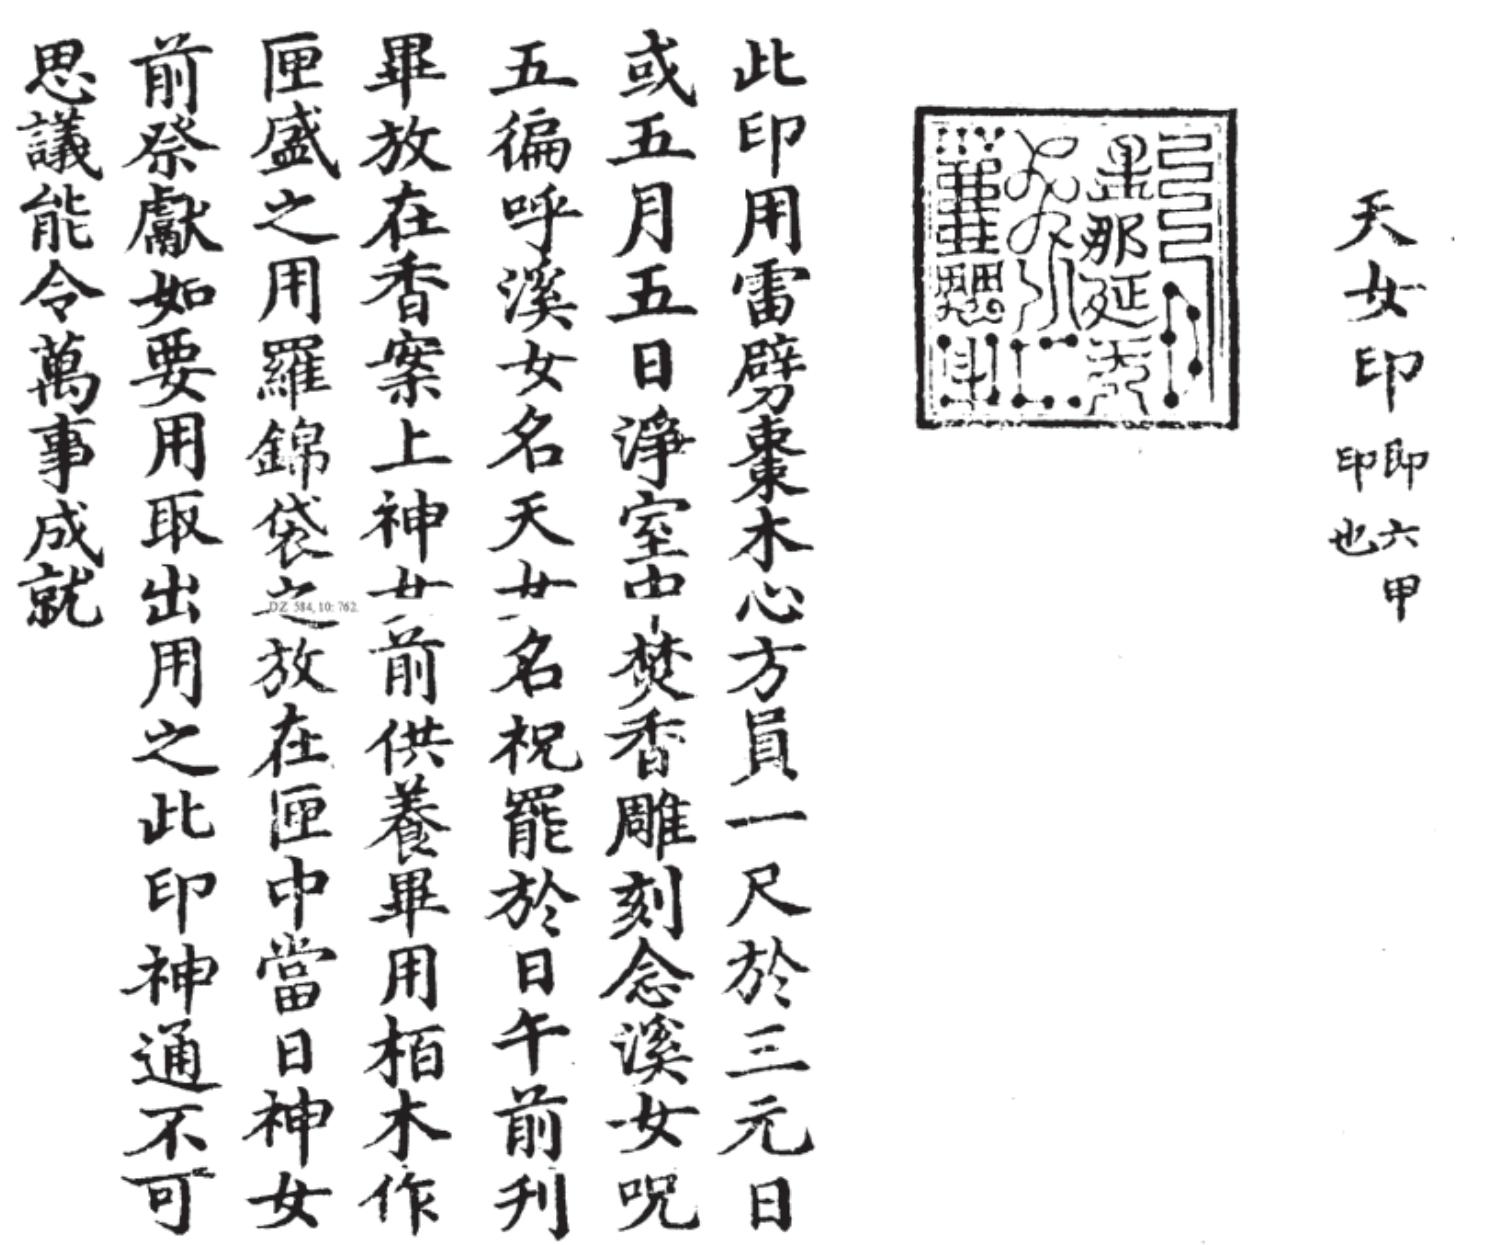 天女印 即六甲
印也
此印用雷劈棗木心方員一尺於三元日
或五月五日淨室中焚香雕刻念溪女呪
五徧呼溪女名天女名祝罷於日午前刋
畢放在香案上神女前供養畢用栢木作
匣盛之用羅錦袋之放在匣中當日神女
前祭獻如要用取出用之此印神通不可
思議能令萬事成就
DZ 584, 10: 762.